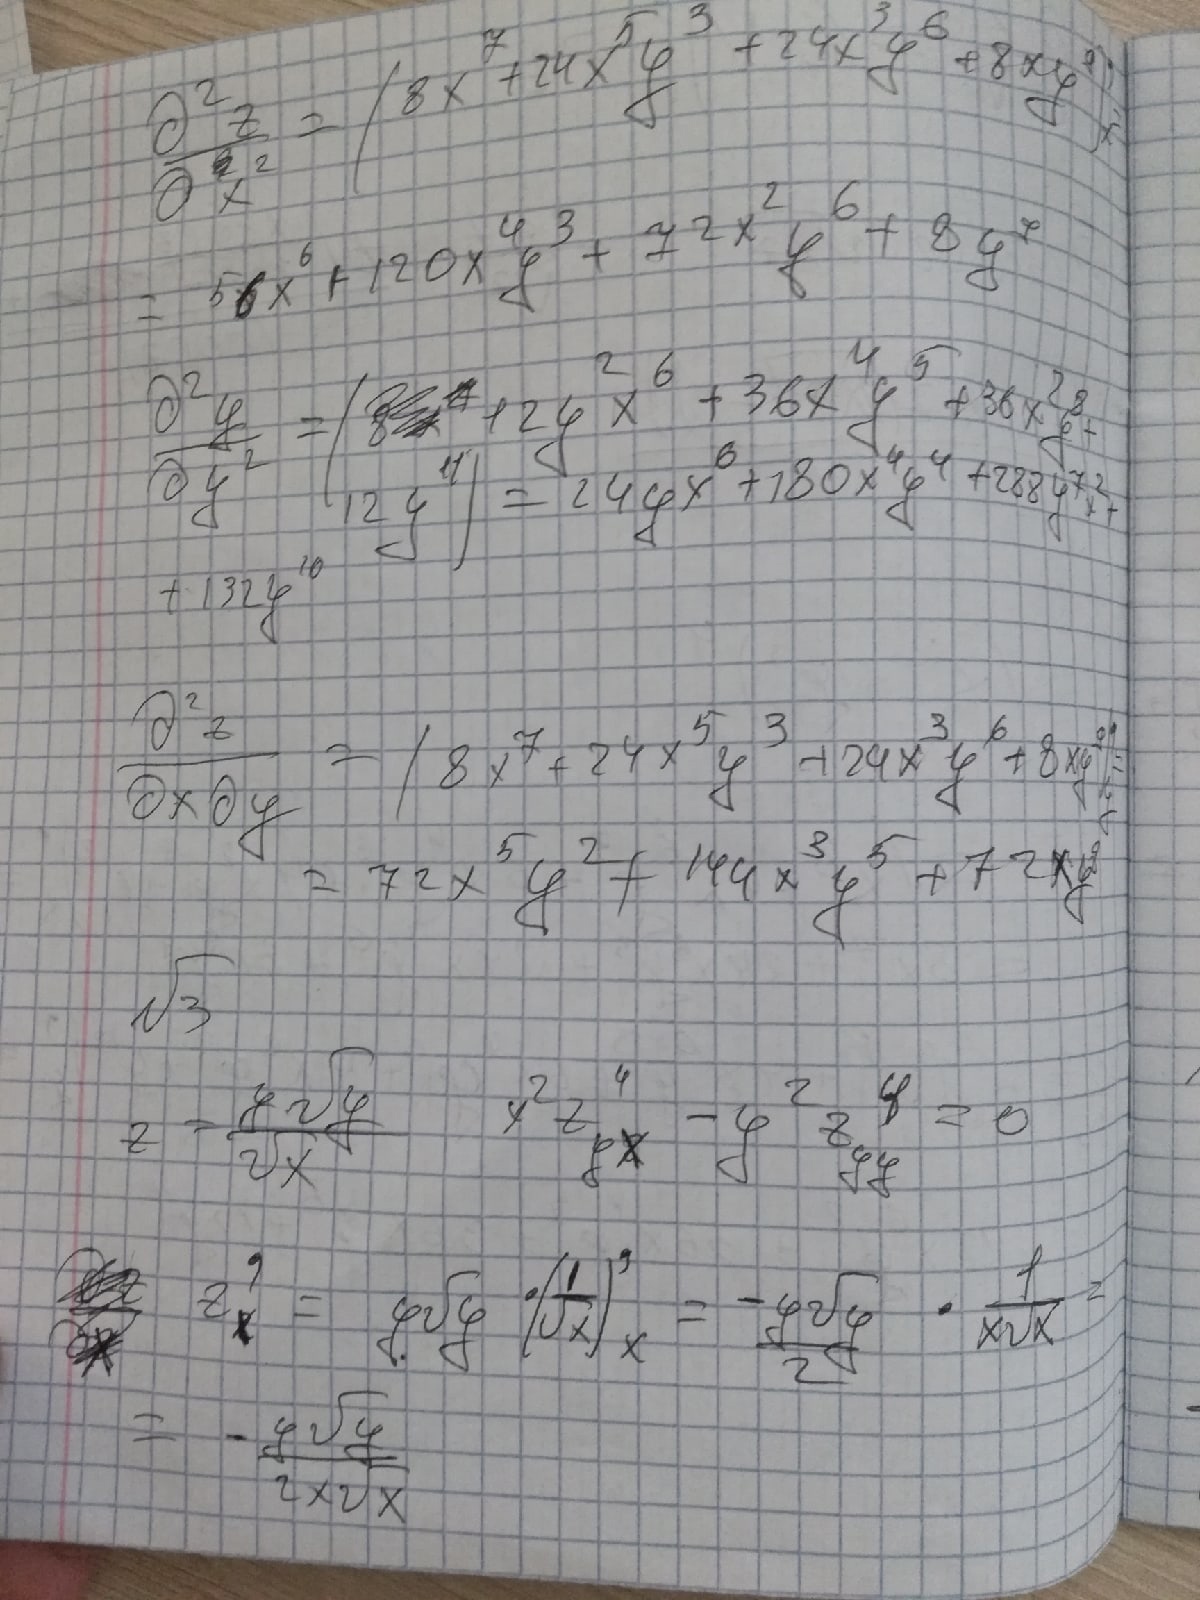 ∂²z/∂x² = (8x⁷ + 24x⁵y³ + 24x³y⁶ + 8xy⁹)'ₓ
= 56x⁶ + 120x⁴y³ + 72x²y⁶ + 8y⁹
∂²y/∂y² = ( + 12y²x⁶ + 36x⁴y⁵ + 36x²y⁸ +
12y¹¹) = 24yx⁶ + 180x⁴y⁴ + 288y⁷x² +
+ 132y¹⁰
∂²z/∂x∂y = (8x⁷ + 24x⁵y³ + 24x³y⁶ + 8xy⁹)'ᵧ
= 72x⁵y² + 144x³y⁵ + 72xy⁸
√3
z = y√y/√x x²z''ᵧₓ - y²z''ᵧᵧ = 0
z'ₓ = y√y · (1/√x)'ₓ = -y√y/2 · 1/x√x =
= - y√y/2x√x